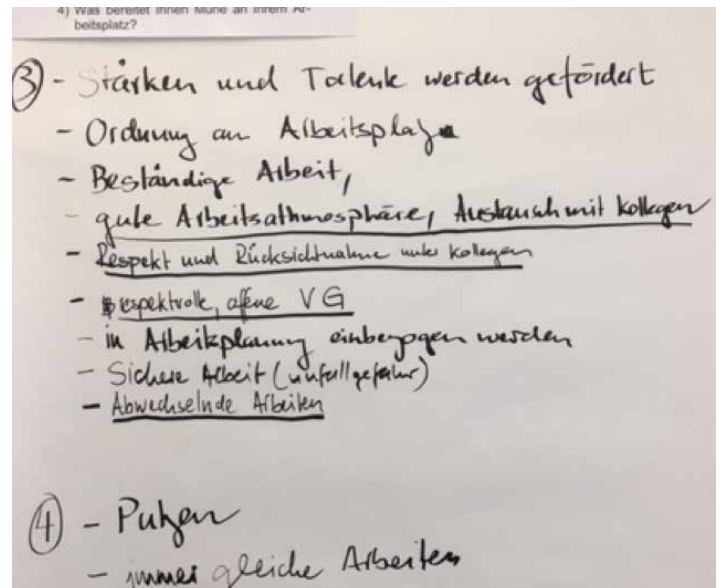 4) Was bereitet Ihnen Mühe an Ihrem Ar-
beitsplatz?
③ - Stärken und Talente werden gefördert
- Ordnung am Arbeitsplatz
- Beständige Arbeit,
- gute Arbeitsathmosphäre, Austausch mit Kollegen
- Respekt und Rücksichtnahme unter Kollegen
- Respektvolle, offene VG
- in Arbeitsplanung einbezogen werden
- Sichere Arbeit (Unfallgefahr)
- Abwechselnde Arbeiten
④ - Putzen
- immer gleiche Arbeiten